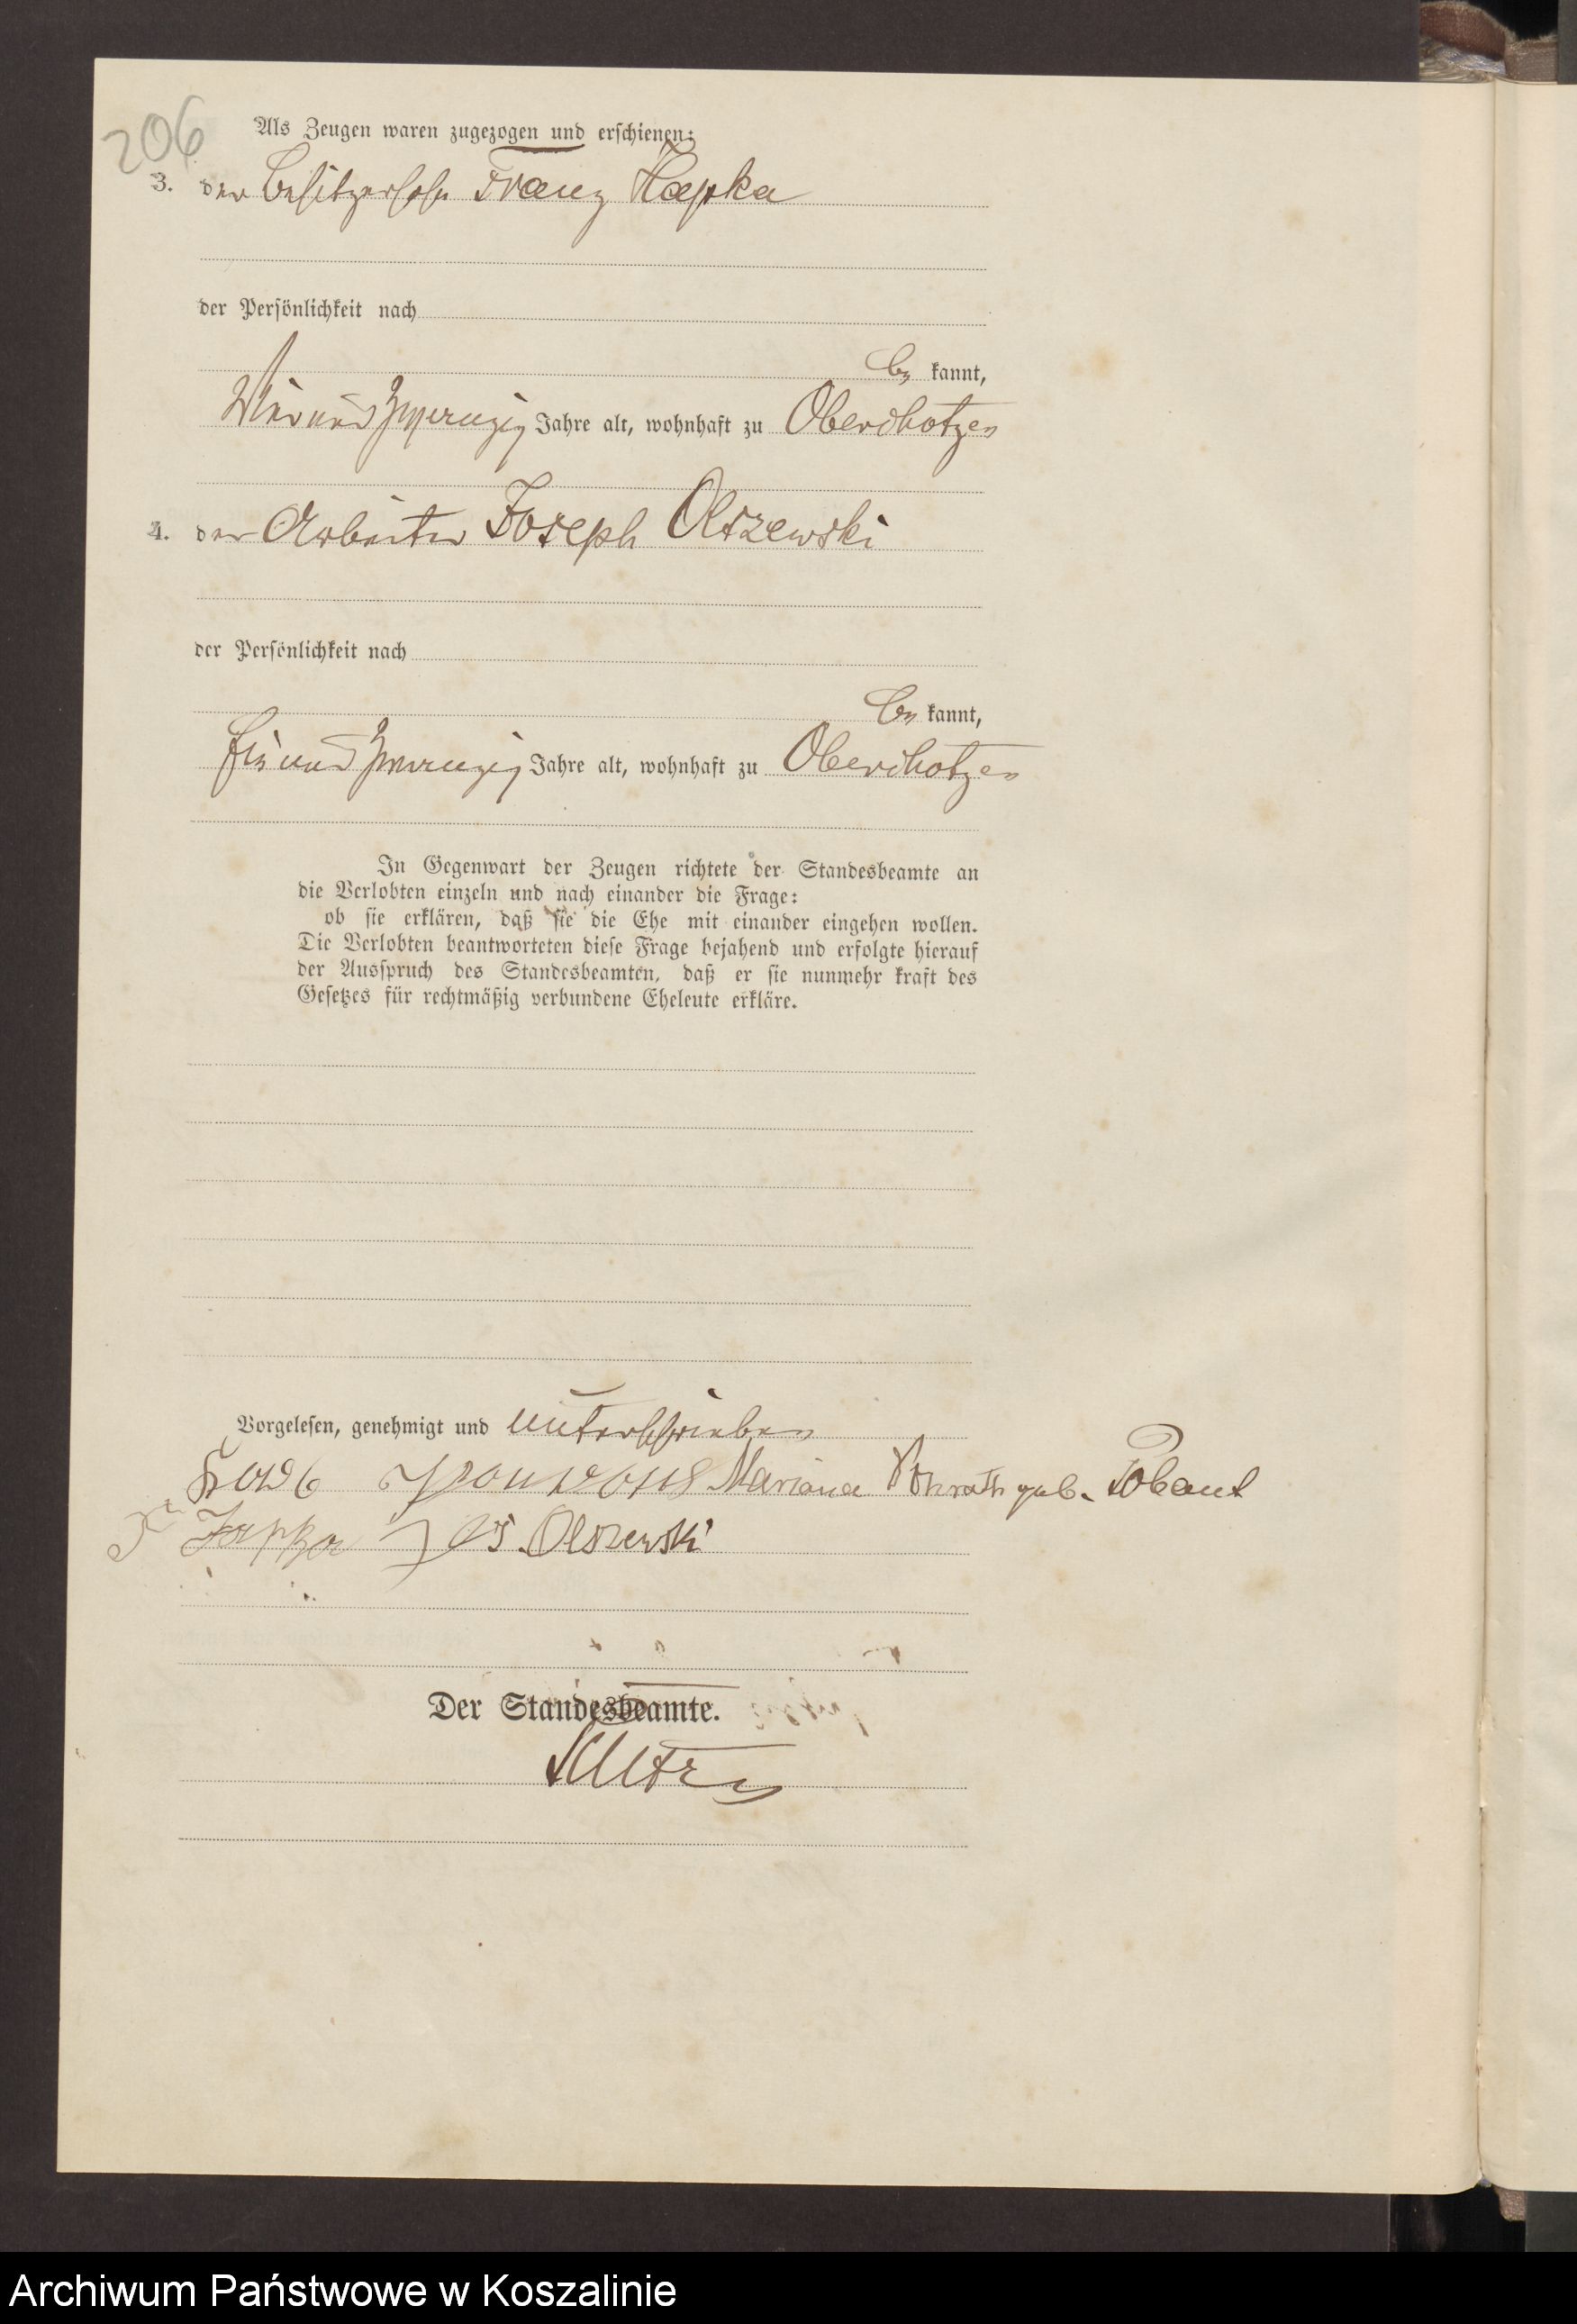 206
Als Zeugen waren zugezogen und erschienen:
3. der Besitzersohn Franz Hapka
der Persönlichkeit nach
be kannt,
Vierundzwanzig Jahre alt, wohnhaft zu Oberchotzen
4. der Arbeiter Joseph Olszewski
der Persönlichkeit nach
be kannt,
Einundzwanzig Jahre alt, wohnhaft zu Oberchotzen
In Gegenwart der Zeugen richtete der Standesbeamte an
die Verlobten einzeln und nach einander die Frage:
ob sie erklären, daß sie die Ehe mit einander eingehen wollen.
Die Verlobten beantworteten diese Frage bejahend und erfolgte hierauf
der Ausspruch des Standesbeamten, daß er sie nunmehr kraft des
Gesetzes für rechtmäßig verbundene Eheleute erkläre.
Vorgelesen, genehmigt und unterschrieben
Mariana geb.
J. Olszewski
Der Standesbeamte.
Archiwum Państwowe w Koszalinie